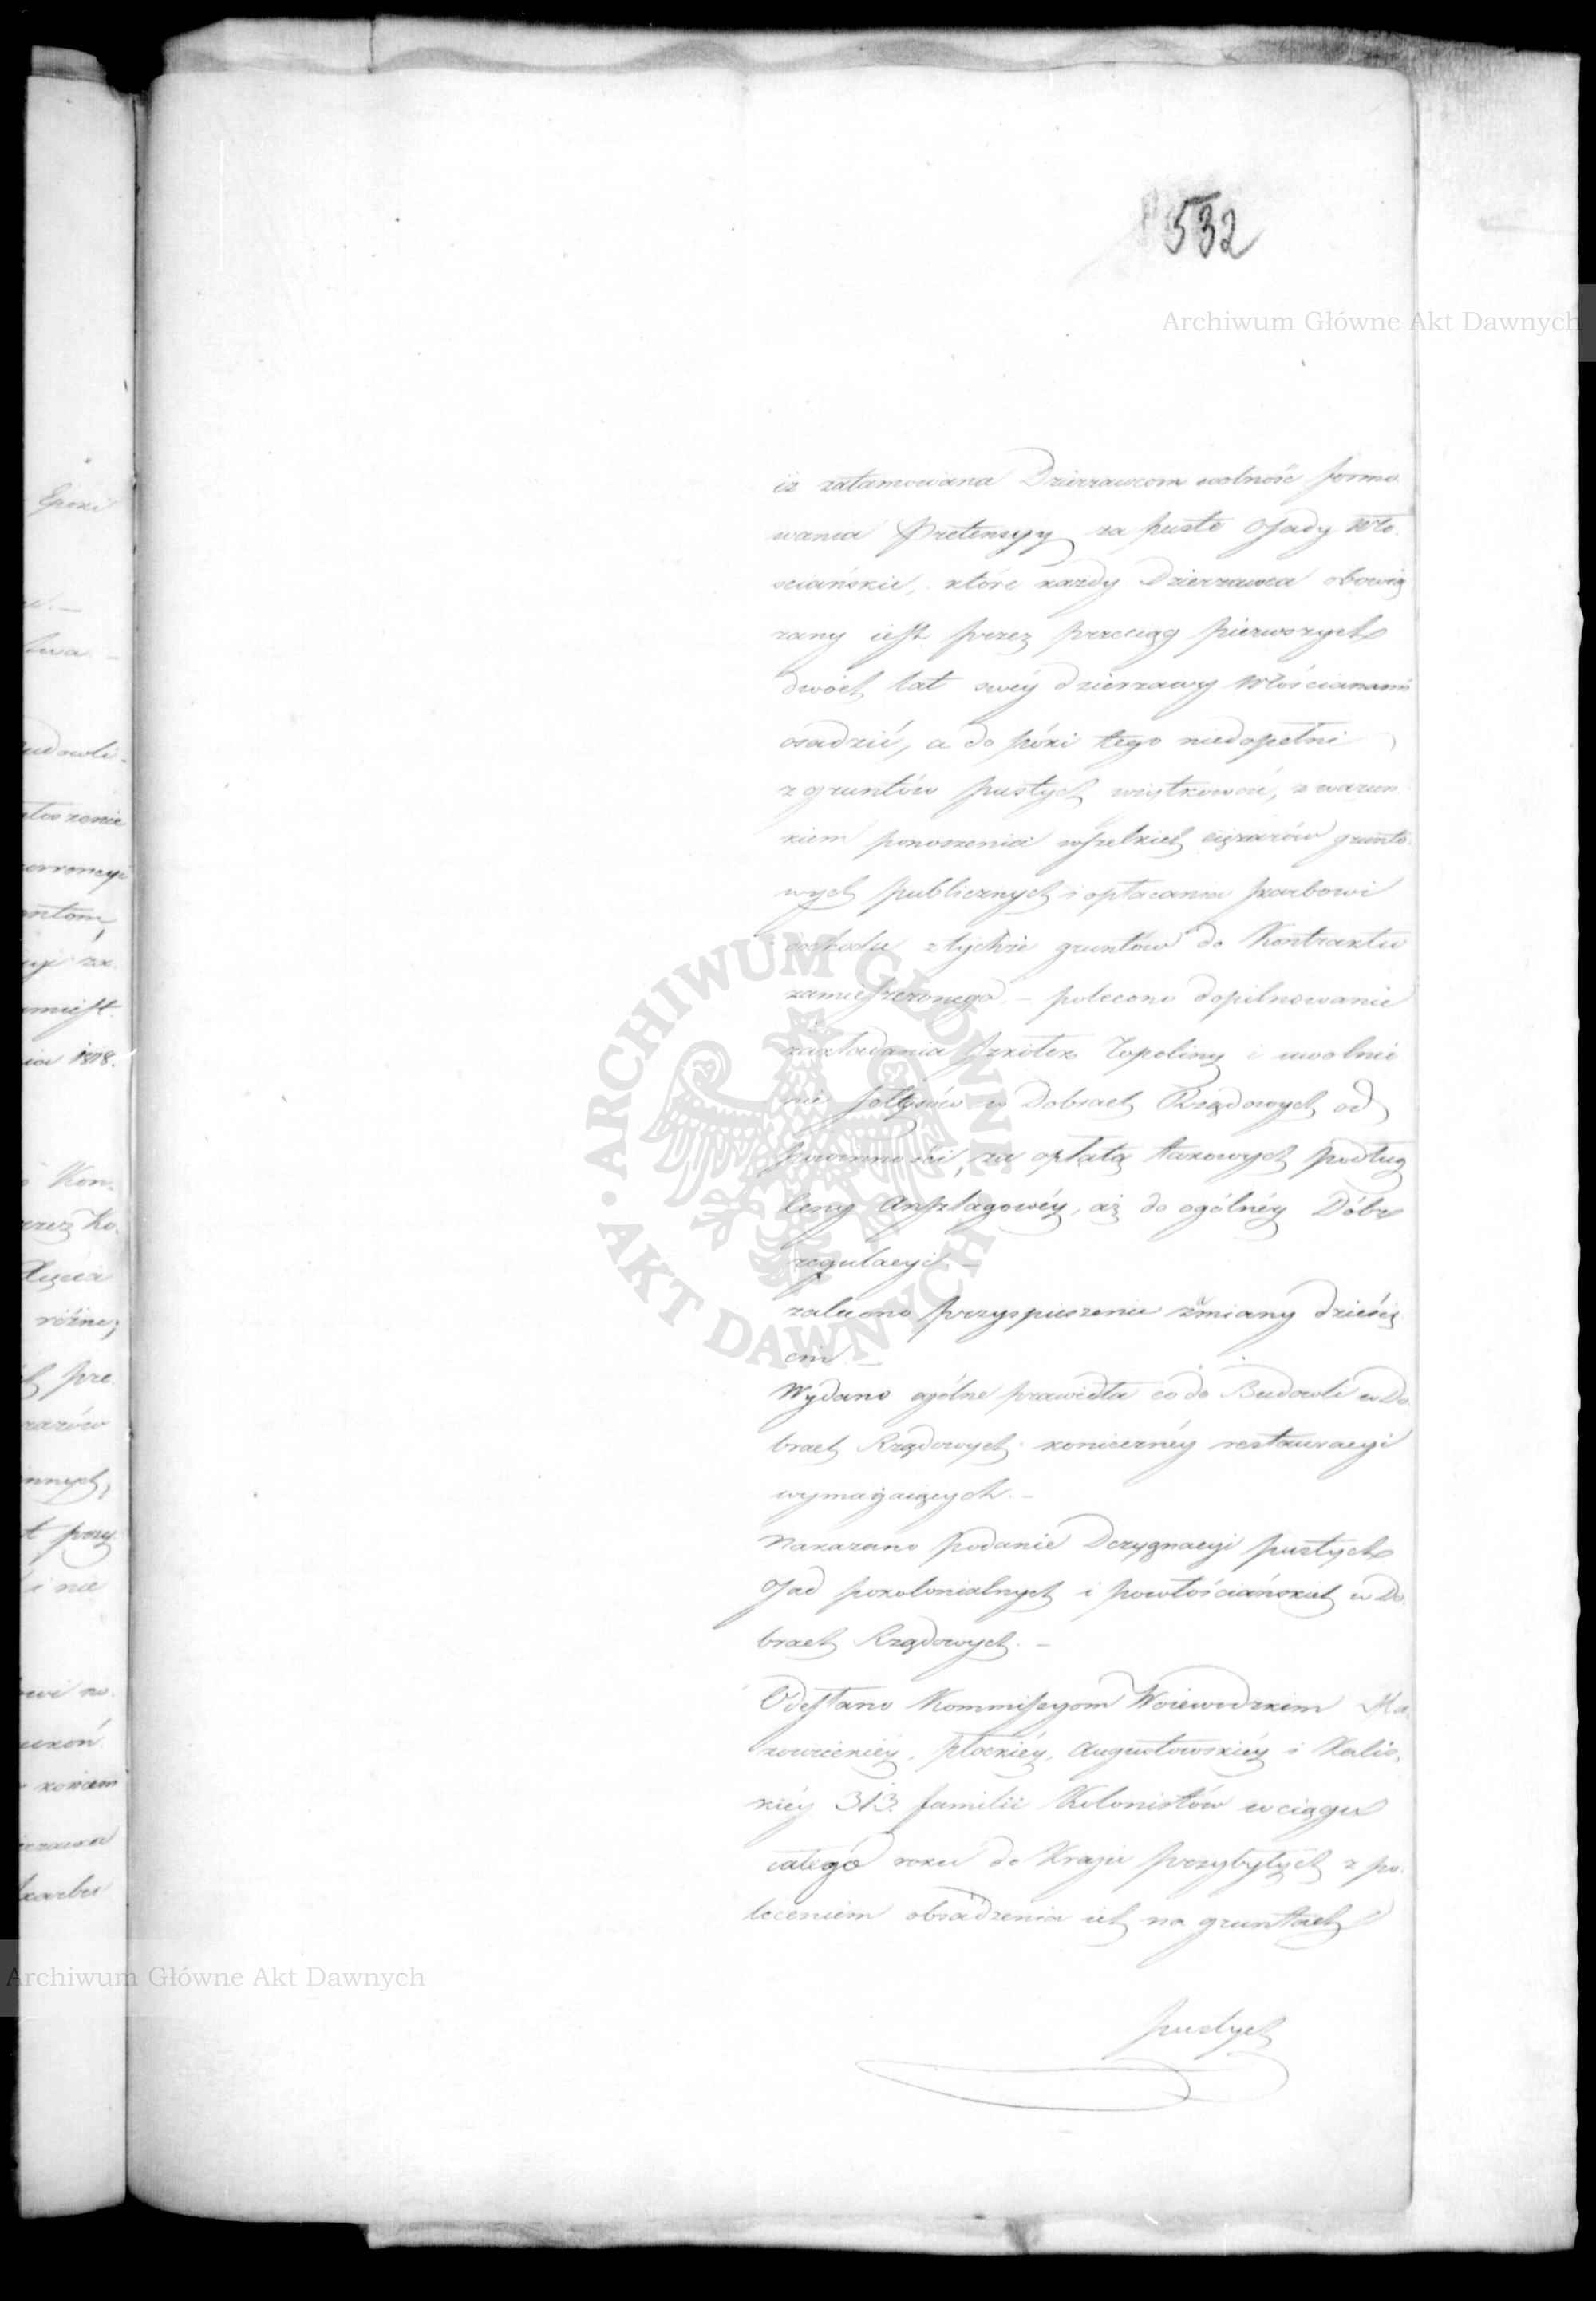 532
Archiwum Główne Akt Dawnych
iż zatamowana Dzierzawcom wolność formo
wania Pretensyy za puste Osady Wło
sciańskie, które każdy Dzierzawca obowią
zany iest przez przeciąg pierwszych
dwóch lat swéy dzierzawy Włościanami
osadzić, a do póki tego niedopełni
z gruntów pustych użytkować, z warun
kiem ponoszenia wszelkich ciężarów grunto
wych publicznych i opłacania skarbowi
dochodu z tychże gruntów do Kontraktu
zamieszczonego. – polecono dopilnowanie
zakładania szkółek Topoliny i uwolnie
nie sołtysów w Dobrach Rządowych od
powinności, za opłatą taxowych podług
Ceny Anszlagowéy, aż do ogólnéy Dóbr
regulacyi. –
zalecono przyspieszenie zmiany dziesię
cin. –
Wydano ogólne prawidła co do Budowli w Do
brach Rządowych koniecznéy restauracyi
wymagaiących. –
Nakazano podanie Dezygnacyi pustych
Osad pokolonialnych i powłościańskich w Do
brach Rządowych. –
Odesłano Kommissyom Woiewodzkim Ma
zowieckiéy, płockiéy, Augustowskiéy i Kalis
kiéy 313. familii Kolonistów w ciągu
całego roku do Kraju przybyłych z po
leceniem obsadzenia ich na gruntach
pustych
Archiwum Główne Akt Dawnych
ARCHIWUM GŁÓWNE · AKT DAWNYCH ·
Epoki
twa. –
udowli
łoszenie
ntom,
miest.
ia 1818.
Kon
rzez Ko
różne;
pre
innych,
i na